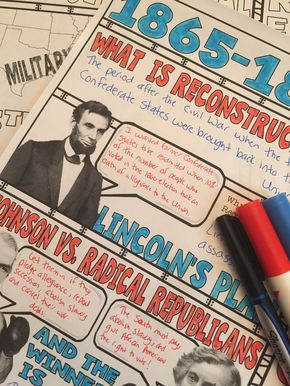 1865-18
WHAT IS RECONSTRUC
The period after the Civil War when the
Confederate States were brought back into th
Un
MILITAR
I wanted former Confederate
states to be readmitted when 10%
of the number of people who
voted in the 1860 election took an
oath of allegiance to the Union.
LINCOLN'S PLA
assas
JOHNSON VS. RADICAL REPUBLICANS
Let them in if they
pledge allegiance, repeal
secession, abolish slavery
and cancel their war
debt!
The South must
abolish slavery and
give African Americans
the right to vote!
AND THE
WINNER
IS